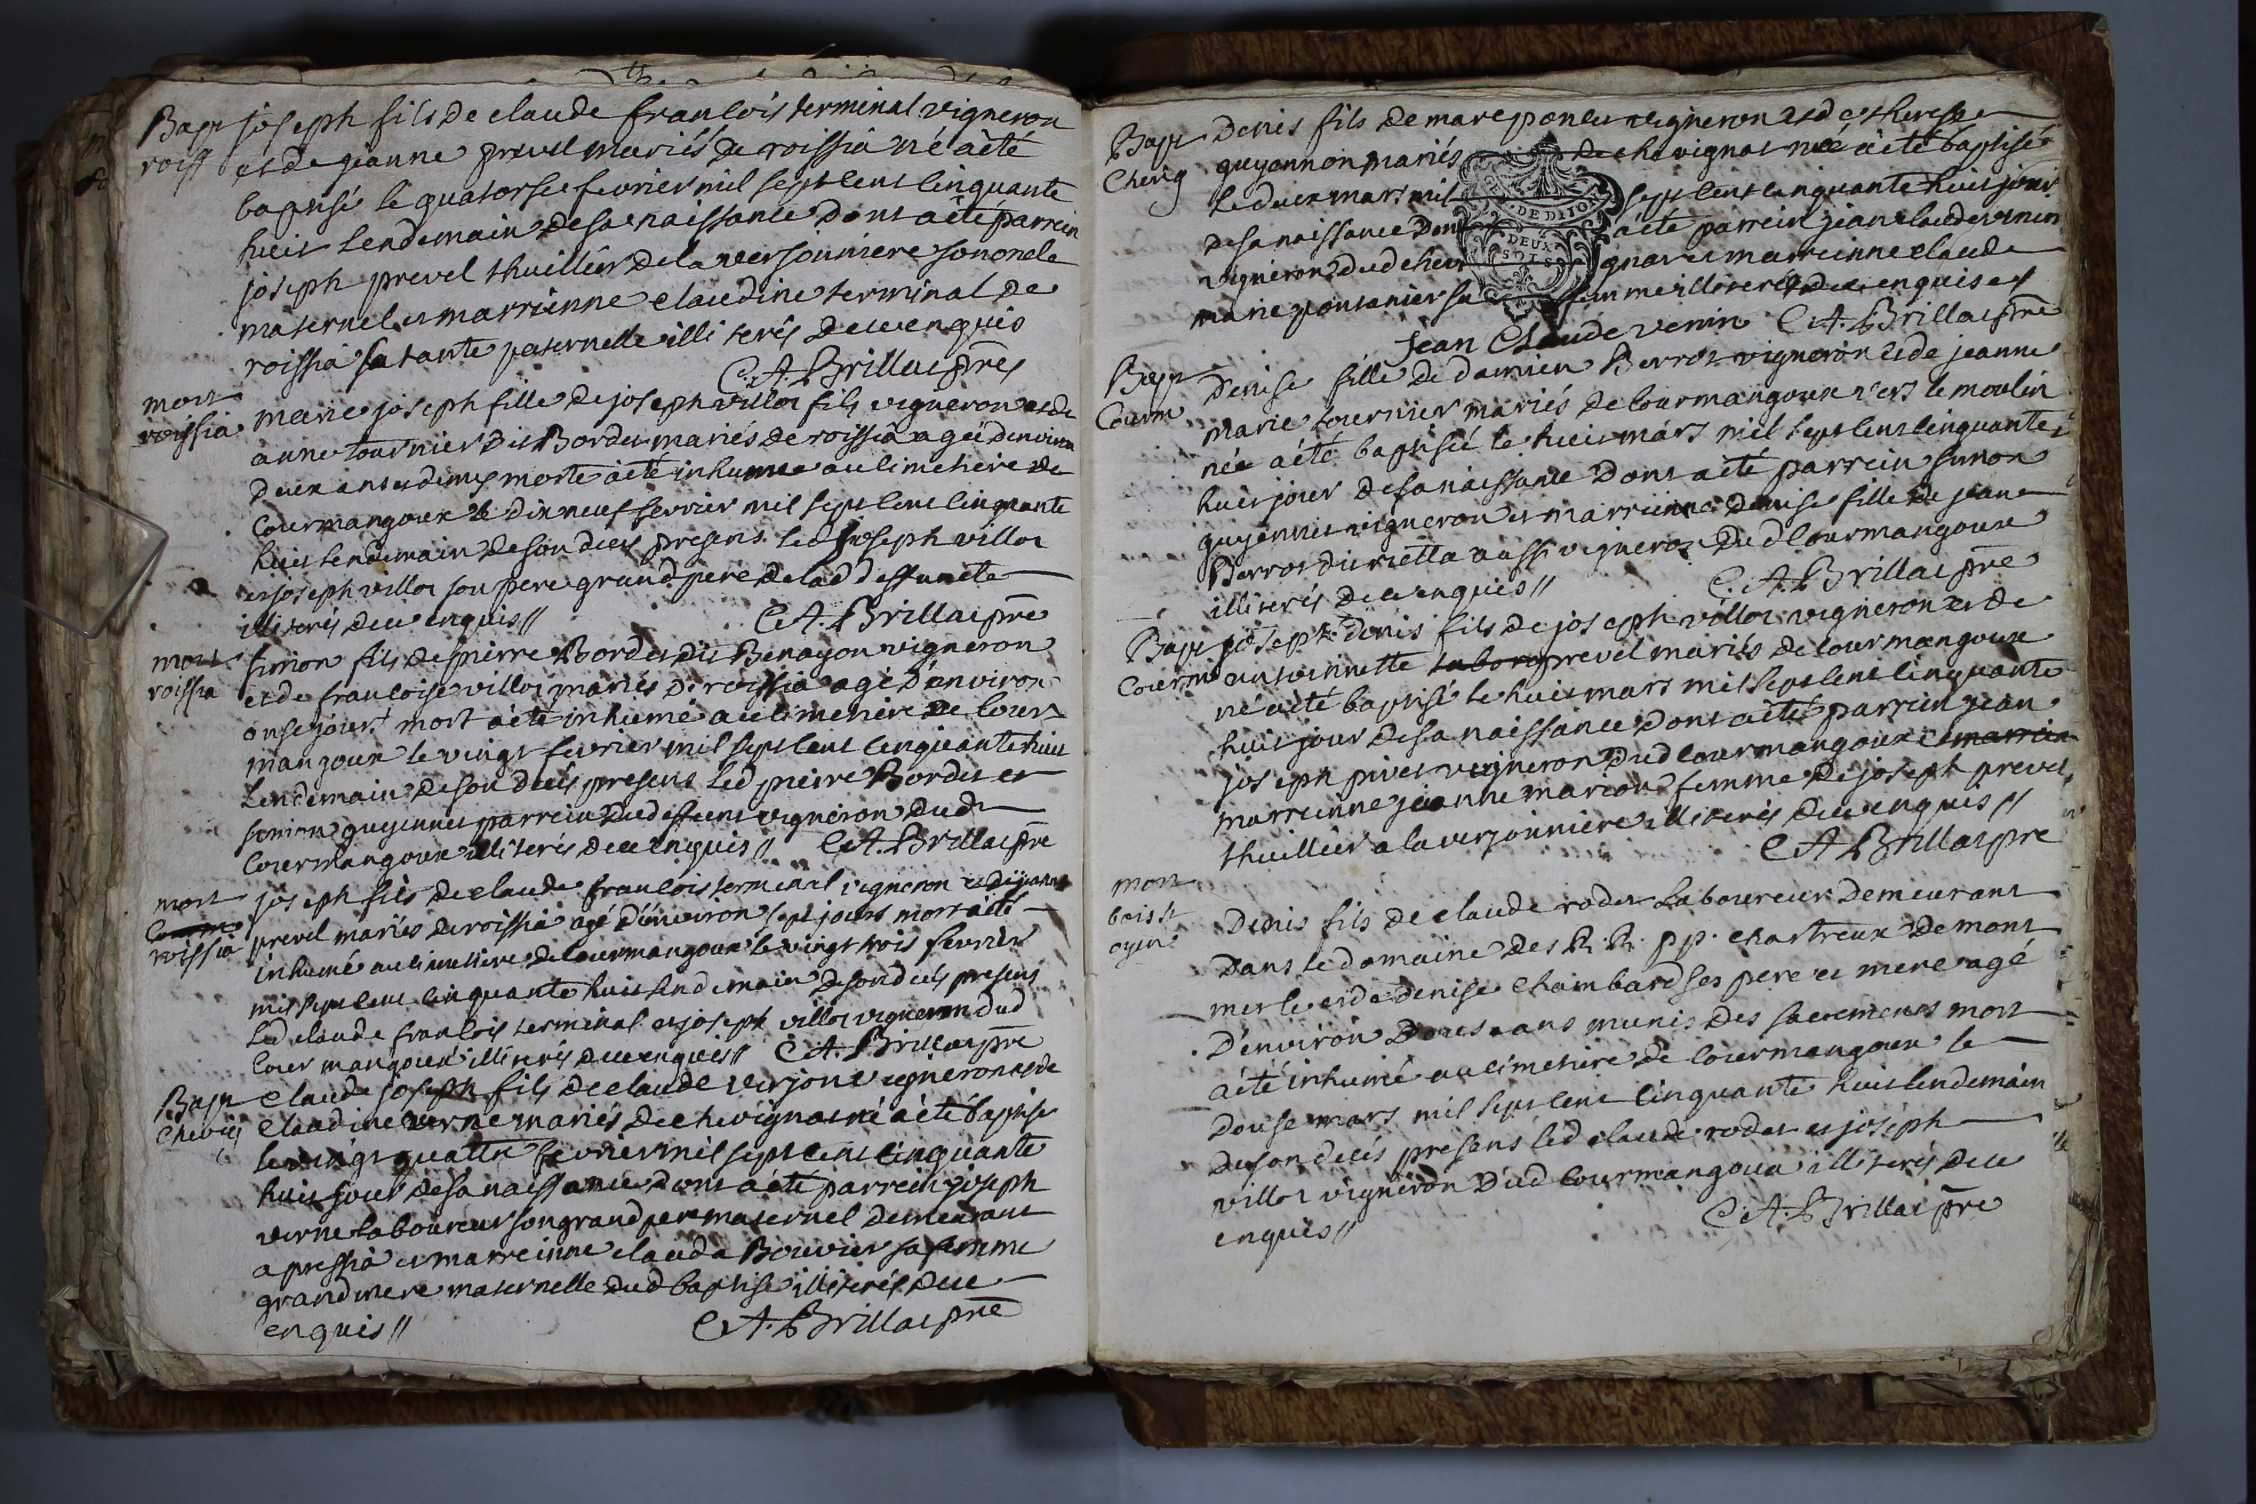 Bapt
roiss
joseph fils de claude francois terminal vigneron
et de jeanne prevel mariés de roissia né a été
baptisé le quatorse fevrier mil sept cent cinquante
huit lendemain de sa naissance dont a été parrein
joseph prevel thuillier de la versonniere son oncle
maternel et marrienne claudine terminal de
roissia sa tante paternelle illiterés de ce enquis
C. A. Brillat pre
mort
roissia
marie joseph fille de joseph villot fils vigneron et de
anne tournier dit Bordet mariés de roissia agée denviron
deux ans et demy morte a été inhumee au cimetiere de
Courmangoux le dix neuf fevrier mil sept cent cinquante
huit lendemain de son deces presens led joseph villot
et joseph villot son pere grand pere de lad deffuncte
illiterés de ce enquis //
C. A. Brillat pre
mort
roissia
simon fils de pierre Bordet dit Benayon vigneron
et de francoise villot mariés de roissia agé d'environ
onse jours mort a été inhumé au cimetiere de Cour-
mangoux le vingt fevrier mil sept cent cinquante huit
lendemain de son deces presens led pierre Bordet et
simon guyennet parrein dud deffunt vigneron dud
Courmangoux illiterés de ce enquis // C. A. Brillat pre
mort
Courm
roissia
joseph fils de claude francois terminal vigneron et de jeanne
prevel mariés de roissia agé d'environ sept jours mort a été
inhumé au cimetiere de courmangoux le vingt trois fevrier
mil sept cent cinquante huit lendemain de son deces presens
led claude francois terminal et joseph villot vigneron dud
Courmangoux illiterés de ce enquis // C. A. Brillat pre
Bapt
Chevig
Claude joseph fils de claude verjon vigneron et de
Claudine verne mariés de chevignat né a été baptisé
le vingt quattre fevrier mil sept cent cinquante
huit jour de sa naissance dont a été parrein joseph
verne laboureur son grand pere maternel demeurant
a pressia et marreinne clauda Bouvier sa femme
grand mere maternelle dud baptisé illiterés de ce
enquis //
C. A. Brillat pre
Bapt
Chevig
Denis fils de marc poncet vigneron et de therese
guyonnon mariés de chevignat né a été baptisé
le deux mars mil sept cent cinquante huit jour
de sa naissance dont a été parrein jean claude venin
vigneron dud chevignat et marreinne claude
marie pontanier sa femme illiterée de ce enquise
GEN. DE DIJON
DEUX
SOLS
Jean Claude venin C. A. Brillat pre
Bapt
Courm
Denise fille de damien Berrot vigneron et de jeanne
marie tournier mariés de courmangoux vers le moulin
née a été baptisée le huit mars mil sept cent cinquante
huit jour de sa naissance dont a été parrein simon
guyennet vigneron et marreinne denise fille de jean
Berrot dit rietta aussi vigneron dud Courmangoux
illiterés de ce enquis //
C. A. Brillat pre
Bapt
Courm
joseph denis fils de joseph villot vigneron et de
antoinette prevel mariés de courmangoux
né a été baptisé le huit mars mil sept cent cinquante
huit jour de sa naissance dont a été parrein jean
joseph pivet vigneron dud courmangoux et marrein
marreinne jeanne marion femme de joseph prevel
thuillier a la verzonniere illiterés de ce enquis //
C. A. Brillat pre
mort
Denis fils de claude rodet laboureur demeurant
dans le domaine des R. R. p p. chartreux de mont
merle et de denise chambard ses pere et mere agé
d'environ douse ans munis des sacremens mort
a été inhumé au cimetiere de courmangoux le
douse mars mil sept cent cinquante huit lendemain
de son decés presens led claude rodet et joseph
villot vigneron dud courmangoux illiterés de ce
enquis //
C. A. Brillat pre